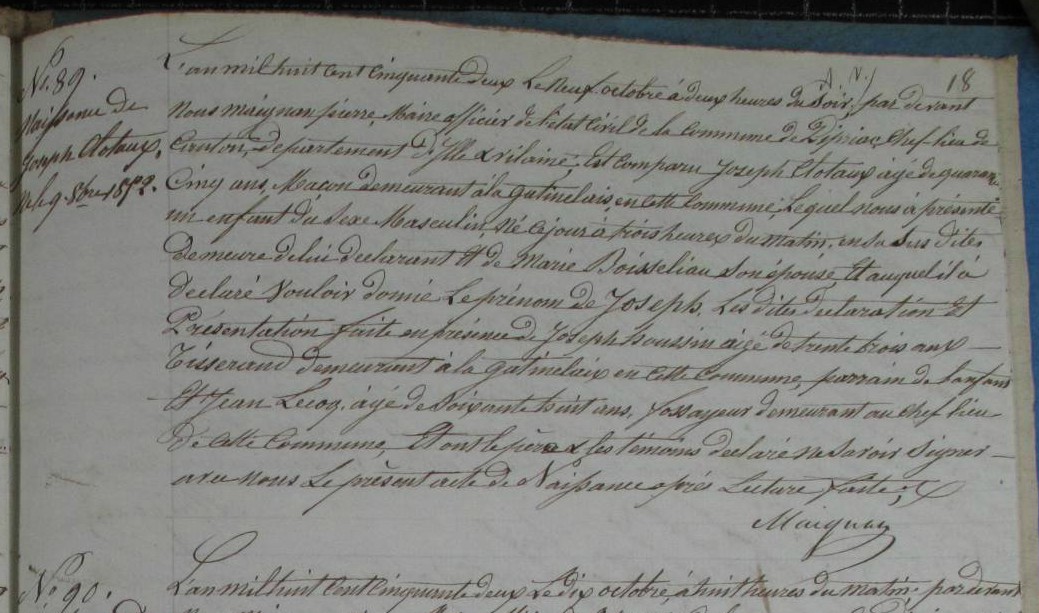 18
N° 89.
Naissance de
Joseph Clotaux,
né le 9 8bre 1852.
L'an mil huit cent cinquante deux Le Neuf octobre à deux heures du Soir, par devant
Nous maignan pierre, Maire officier de l'état Civil de la Commune de Pipriac, Chef-lieu de
Canton, département d'Ille & vilaine, Est Comparu Joseph Clotaux agé de quarante
Cinq ans, Macon demeurant à la gatinelais, en cette Commune, Lequel nous a présenté
un enfant du Sexe Masculin, Né Ce jour à trois heures du matin, en sa Sus dite
Demeure de lui declarant Et de Marie Boisseliau Son épouse, Et auquel il à
declaré Vouloir donné Le prénom de Joseph. Les dites declaration Et
Présentation faite en présence de Joseph houssin agé de trente trois ans
Tisserand demeurant à la gatinelaix en Cette Commune, parrain de lanfant
Et Jean Lecoq, agé de Soixante huit ans, fossayeur demeurant au Chef lieu
de Cette Commune, Et ont le père & les témoins declaré ne Savoir Signer
avec nous Le présent acte de Naissance après Lecture faite,
Maignan
N° 90.
L'an mil huit Cent Cinquante deux Le dix octobre, à huit heures du matin, par devant